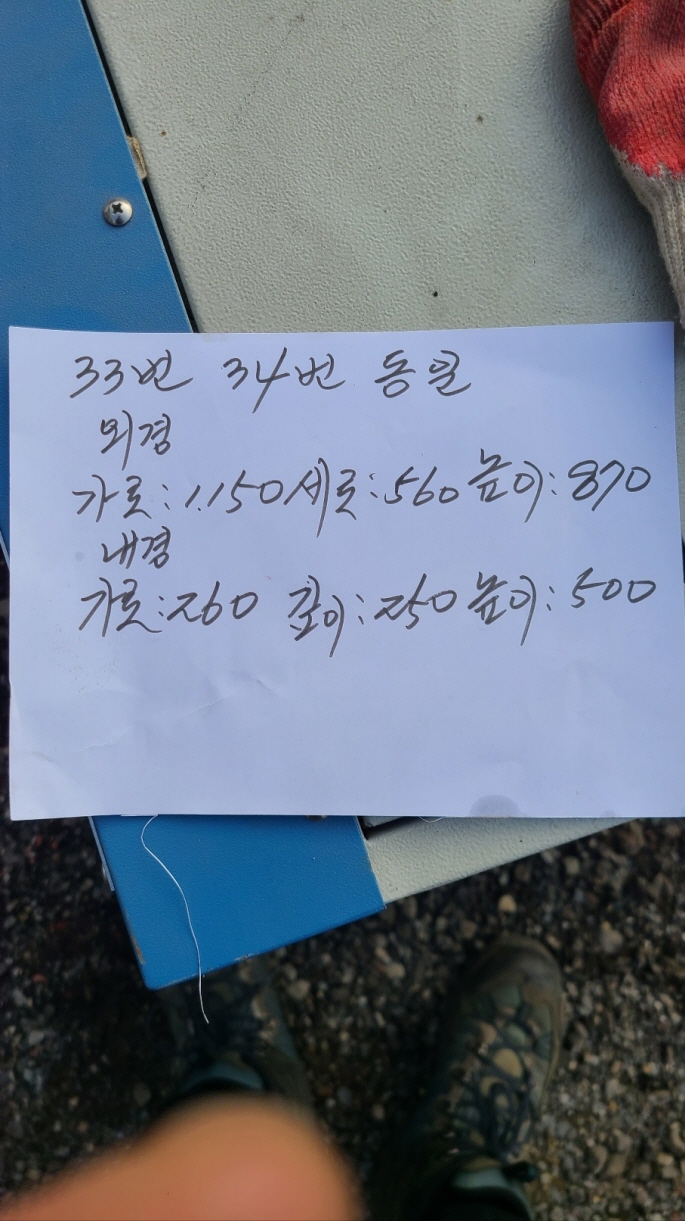 33번 34번 동일
외경
가로:1.150 세로:560 높이:870
내경
가로:260 깊이:250 높이:500